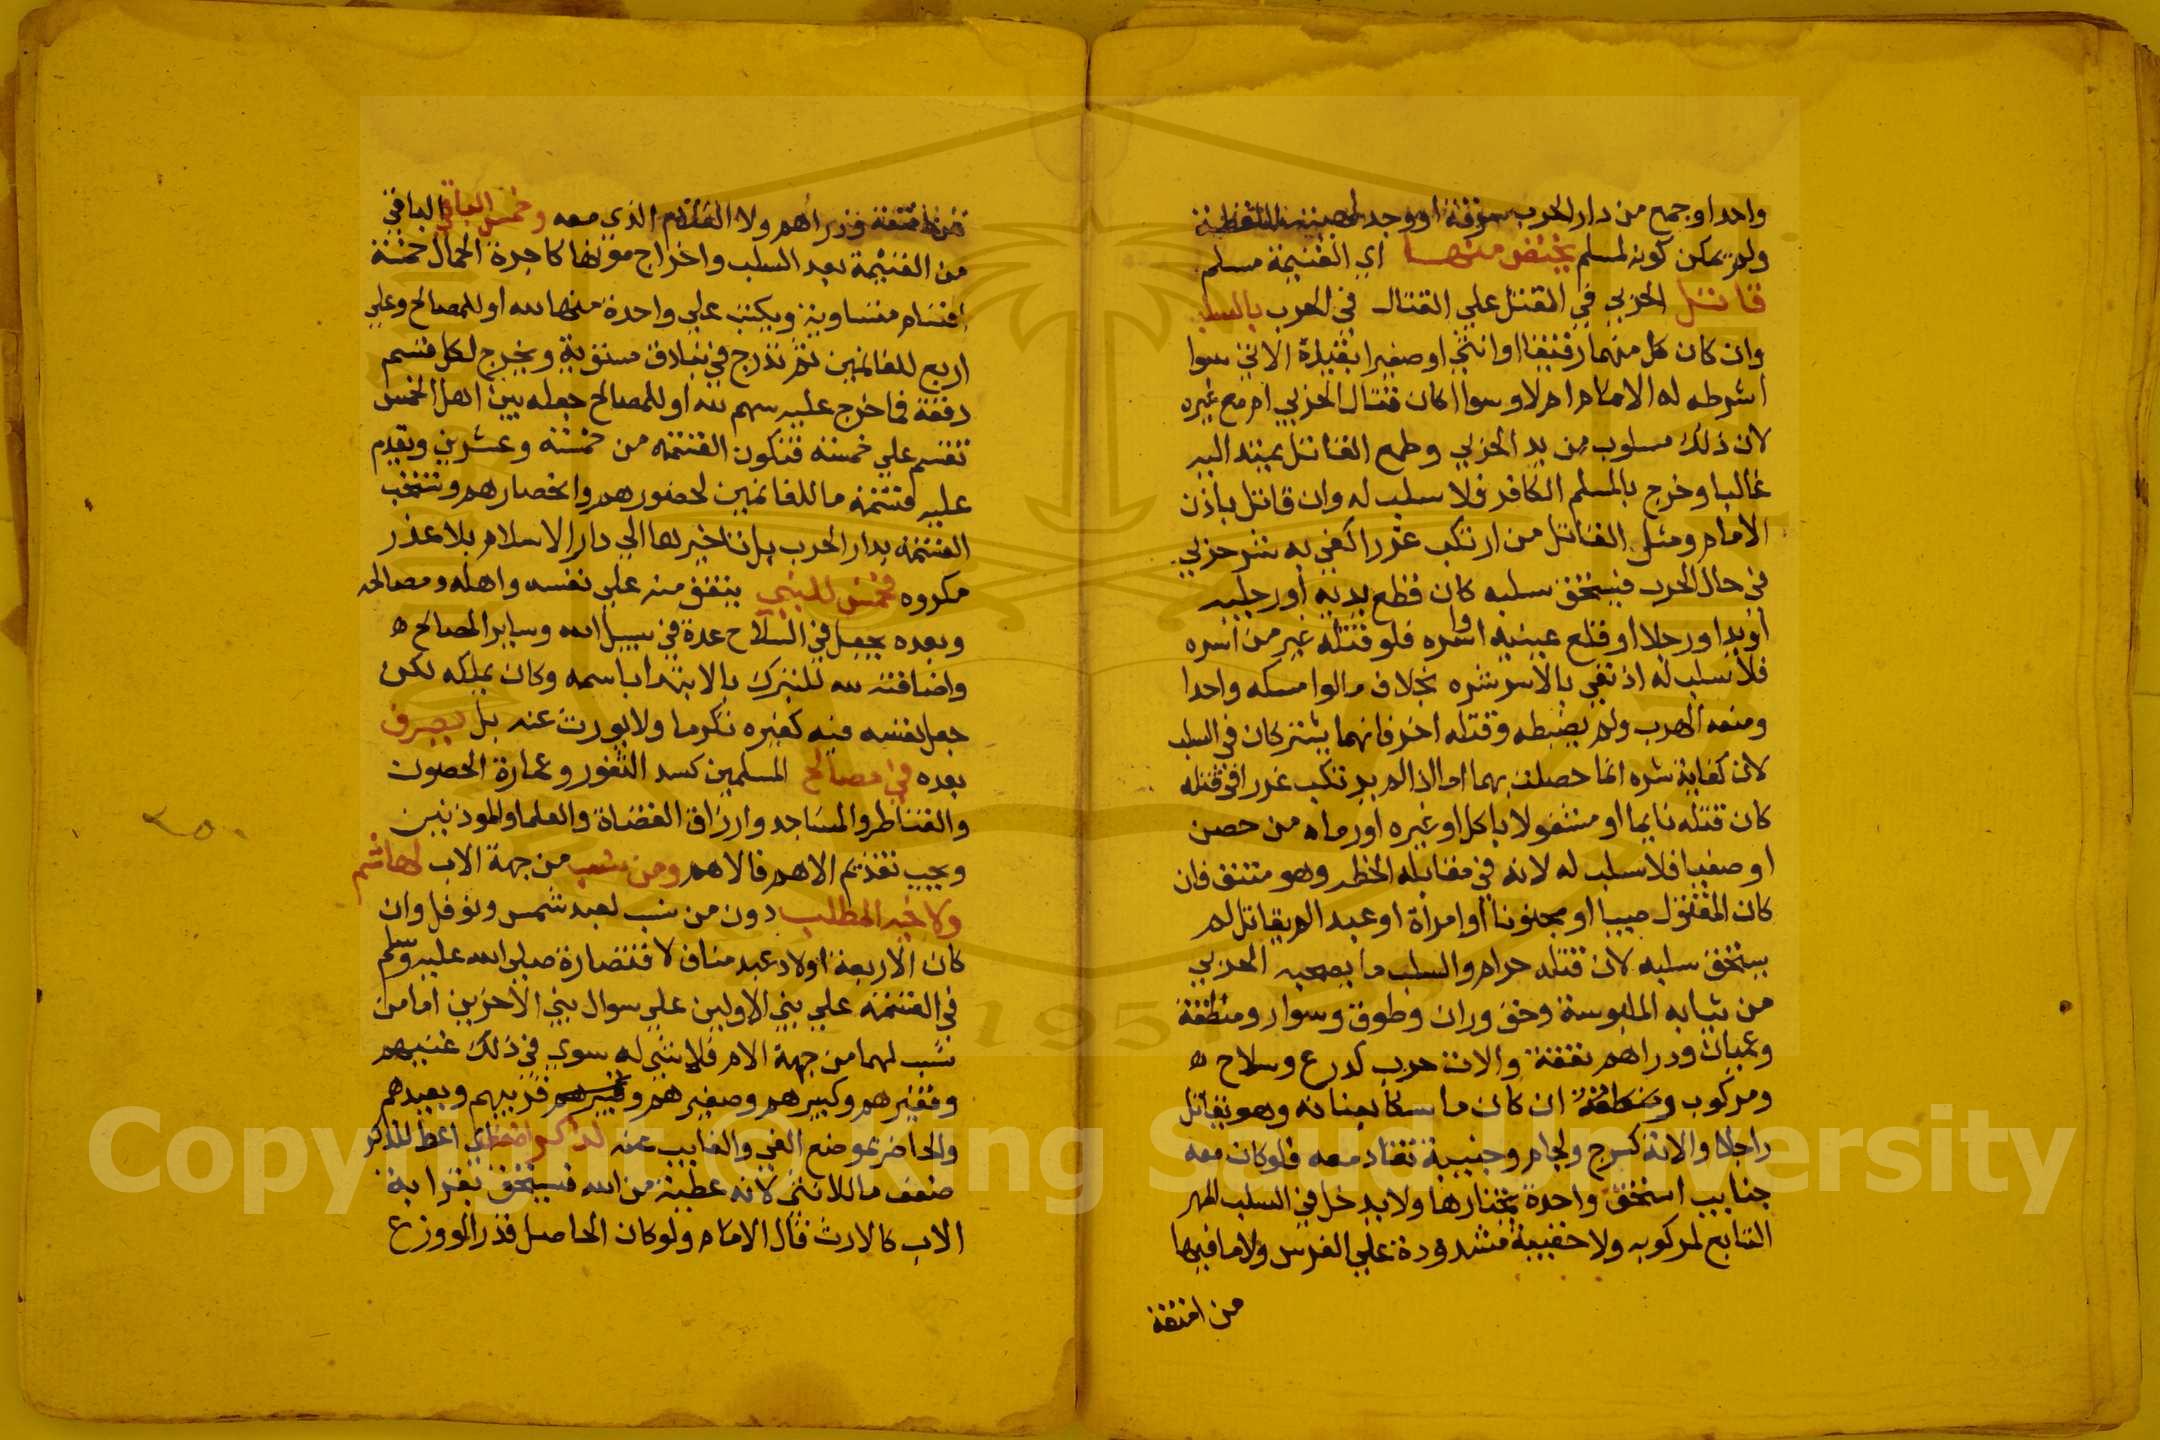 واحدا وجمع من دار الحرب سرقة او وجد
ولم يمكن كونه لمسلم يختص منها اي الغنيمة مسلم
قاتل الحربي في القتل علي القتال في الحرب بالسلب
وان كان كل منهما رقيقا او انثي او صغيرا سوا
اشرطه له الامام ام لا وسوا اكان قتال الحربي ام مع غيره
لان ذلك مسلوب من يد الحربي وطمع القاتل يمتد اليه
غالبا وخرج بالمسلم الكافر فلا سلب له وان قاتل باذن
الامام ومثل القاتل من ارتكب غررا كفي به شر حربي
في حال الحرب فيستحق سلبه كان قطع يديه او رجليه
او يدا ورجلا او قلع عينيه او اسره فلو قتله غير من اسره
فلا سلب له اذ كفي بالاسر شره بخلاف ما لو امسكه واحدا
ومنعه الهرب ولم يضبطه وقتله اخر فانهما يشتركان في السلب
لان كفاية شره انما حصلت بهما اما اذا لم يرتكب غررا في قتله
كان قتله نايما او مشغولا باكل او غيره او رماه من حصن
او صف فلا سلب له لانه في مقابلة الخطر وهو منتف فان
كان المقتول صبيا او مجنونا او امراة او عبدا لم يقاتل لم
يستحق سلبه لان قتله حرام والسلب ما يصحبه الحربي
من ثيابه الملبوسة وخف وران وطوق وسوار ومنطقة
وهميان ودراهم نفقة والات حرب كدرع وسلاح ه
ومركوب ان كان ماسكا بعنانه وهو يقاتل
راجلا والاته كسرج ولجام وجنيبة تقاد معه فلو كان معه
جنايب استحق واحدة يختارها ولا يدخل في السلب المهر
التابع لمركوبه ولا حقيبة مشدودة علي الفرس ولا ما فيها
من امتعة
من امتعة ودراهم ولا الغلام الذي معه وخمس الباقي الباقي
من الغنيمة بعد السلب واخراج مونها كاجرة الحمال خمسة
اقسام متساوية ويكتب علي واحدة منها لله او للمصالح وعلي
اربع للغانمين ثم تدرج في بنادق مستوية ويخرج لكل قسم
رقعة فما خرج عليه سهم لله او للمصالح جعله بين اهل الخمس
تقسم علي خمسة فتكون القسمة من خمسة وعشرين ويقدم
عليه قسمة ما للغانمين لحضورهم وانحصارهم وتستحب
القسمة بدار الحرب بل تاخيرها الي دار الاسلام بلا عذر
مكروه فخمس للنبي ينفق منه علي نفسه واهله ومصالحه
وبعده يجعل في السلاح عدة في سبيل الله وساير المصالح ه
واضافته لله للتبرك بالابتدا باسمه وكان يملكه لكن
جعل نفسه فيه كغيره تكرما ولا يورث عنه بل يصرف
بعده في مصالح المسلمين كسد الثغور وعمارة الحصون
والقناطر والمساجد وارزاق القضاة والعلما والموذنين
ويجب تقديم الاهم فالاهم ومن نسب من جهة الاب لهاشم
ولاخيه المطلب دون من نسب لعبد شمس ونوفل وان
كان الاربعة اولاد عبد مناف لاقتصاره صلي الله عليه وسلم
في القسمة علي بني الاولين علي سوال بني الاخرين اما من
نسب لهما من جهة الام فلا شي له سوي في ذلك غنيهم
وفقيرهم وكبيرهم وصغيرهم قريبهم وبعيدهم
والحاضر بموضع الفي والغايب عنه لذاكر اي اعط للذكر
ضعف ما للانثي لانه عطية من الله فيستحق بقرابة
الاب كالارث قال الامام ولو كان الحاصل قدرا لو وزع
٢٥٠
Copyright © King Saud University
1957